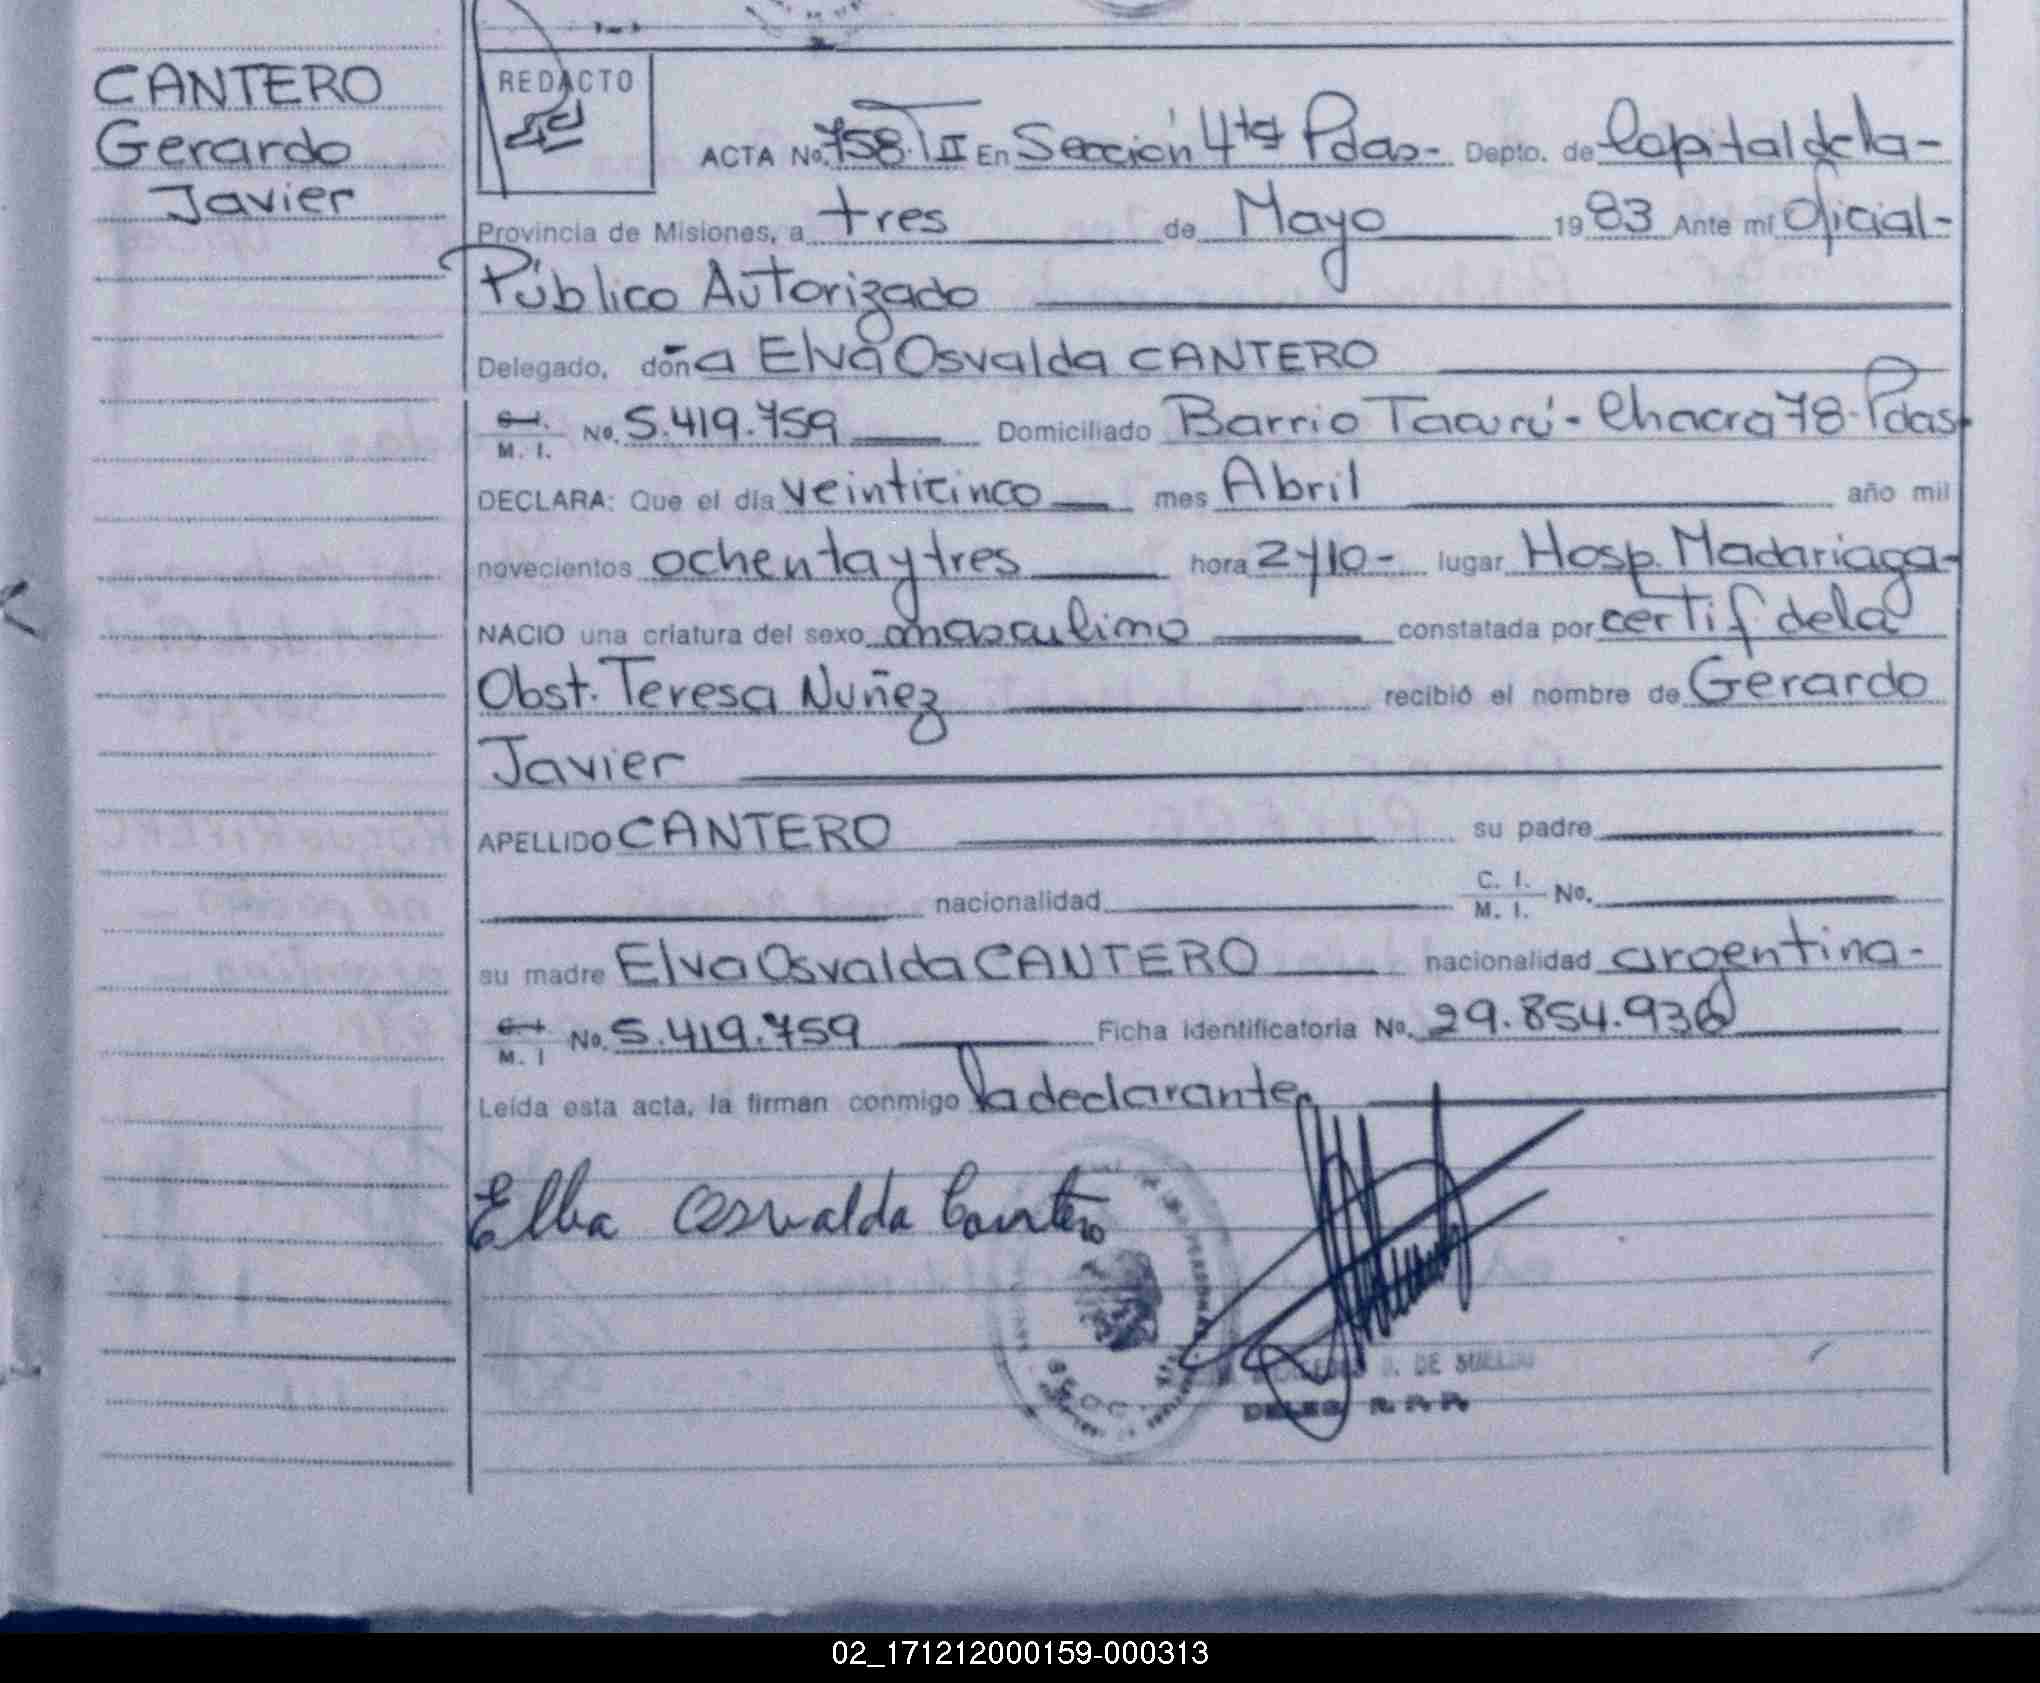 CANTERO
Gerardo
Javier
REDACTO
ACTA No. 758. T II En Sección 4ta Pdas- Depto. de Capital de la-
Provincia de Misiones, a tres de Mayo 1983 Ante mí Oficial-
Público Autorizado
Delegado, doña Elva Osvalda CANTERO
C.I. M. I. No. 5.419.759 Domiciliado Barrio Tacurú- Chacra 78- Pdas.
DECLARA: Que el día veinticinco mes Abril año mil
novecientos ochenta y tres hora 2y10- lugar Hosp. Madariaga-
NACIO una criatura del sexo masculino constatada por certif de la
Obst. Teresa Nuñez recibió el nombre de Gerardo
Javier
APELLIDO CANTERO su padre
nacionalidad C. I. M. I. No.
su madre Elva Osvalda CANTERO nacionalidad argentina-
C.I. M. I No. 5.419.759 Ficha identificatoria No. 29.854.936
Leída esta acta, la firman conmigo la declarante
Elba Osvalda Cantero
DE SUELDO
DELEG. R. P. P.
02_171212000159-000313